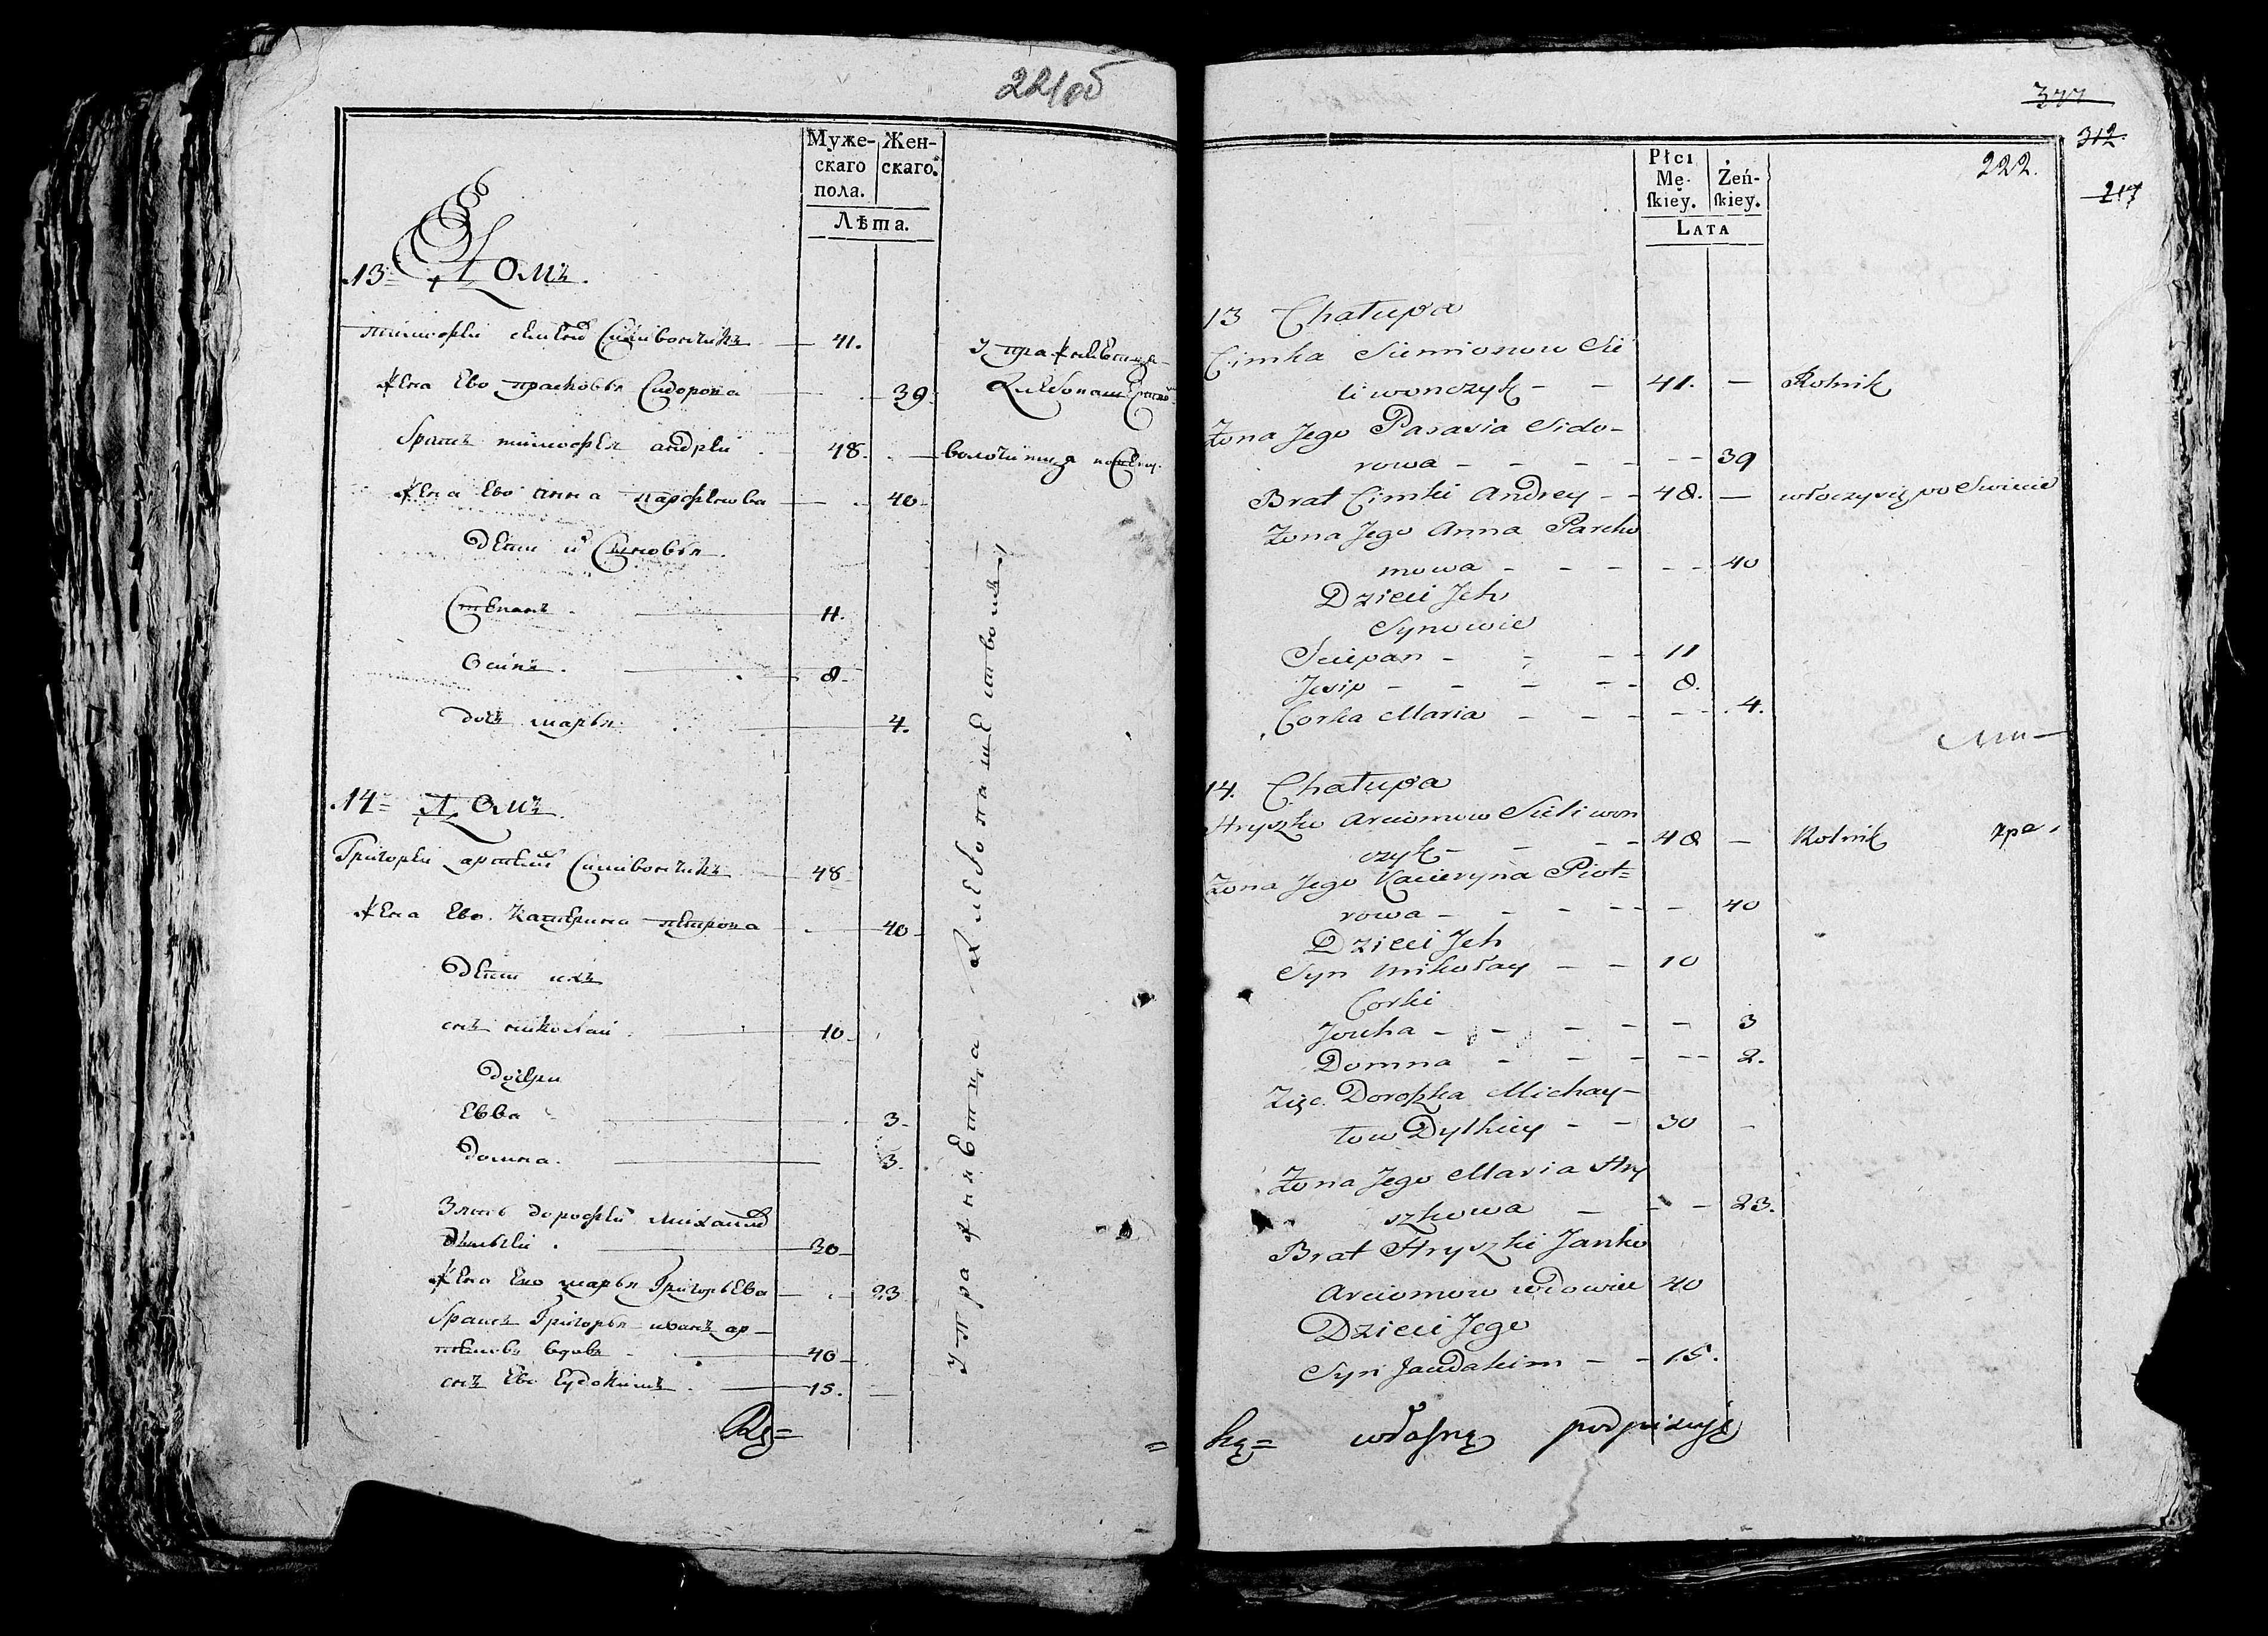 221об
Муже-
скаго
пола.
Жен-
скаго.
Лѣта.
13 Домъ.
Тимофей Селивончикъ 41.
Жена Ево Прасковья Сидорова 39
братъ Тимофея андрей 48.
Жена Ево анна 40
Дети Сыновья
Степанъ 11.
Осипъ 8
дочь марья 4.
упражняется
хлебопашествомъ
14 Домъ
Григорей Селивончикъ 48
Жена Ево Катерина Петрова 40
Дети ихъ
снъ николай 10
Дочери
Евва 3
домна 3.
Зять дорофей
30
Жена Ево марья Григорьева 23
братъ Григорья иванъ ар-
темовъ вдовъ 40
снъ Ево Евдокимъ 15.
упражняетца хлебопашествомъ
Rę=
377
312.
217
222.
Płci
Mę-
ſkiey.
Żeń-
ſkiey.
LATA
13 Chałupa
Cimka Siemionow Sie
liwonczyk 41. Rolnik
Zona Jego Parasia Sido-
rowa 39
Brat Cimki Andrey 48. włoczy się po Swiecie
Zona Jego Anna Parcho
mowa 40
Dzieci Jch
Synowie
Sciepan 11
Josip 8.
Corka Maria 4.
14. Chałupa
Hryszko Arciomow Sieliwon
czyk 48 Rolnik
Zona Jego Kacieryna Piot=
rowa 40
Dzieci Jch
Syn Mikołay 10
Corki
Jouha 3
Domna 2.
Zięć Doroszka Michay-
łow Dylkiey 30
Zona Jego Maria Hry
szkowa 23.
Brat Hryszki Janko
Arciomow wdowiec 40
Dzieci Jego
Syn Jaudakim 15.
= ką= własną podpisuję